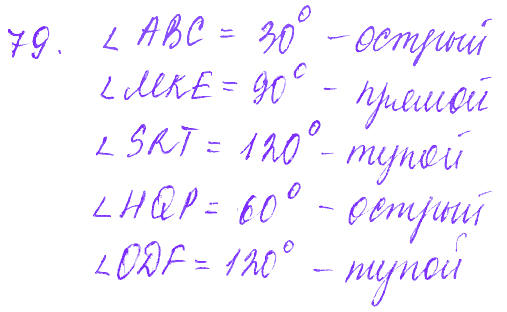 79. ∠ABC = 30° – острый
∠MKE = 90° – прямой
∠SRT = 120° – тупой
∠HQP = 60° – острый
∠ODF = 120° – тупой